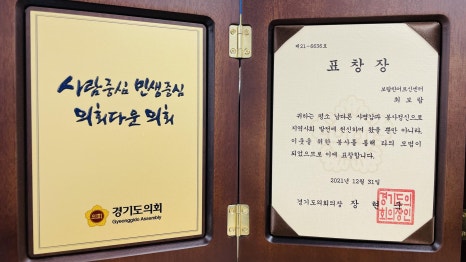 사람중심 민생중심
의회다운 의회
의회
경기도의회
Gyeonggido Assembly
제21-6635호
표창장
보람된어르신센터
최보람
귀하는 평소 남다른 사명감과 봉사정신으로
지역사회 발전에 헌신하여 왔을 뿐만 아니라,
이웃을 위한 봉사를 통해 타의 모범이
되었으므로 이에 표창합니다.
2021년 12월 31일
경기도의회의장 장현국
경기도의
회의장인